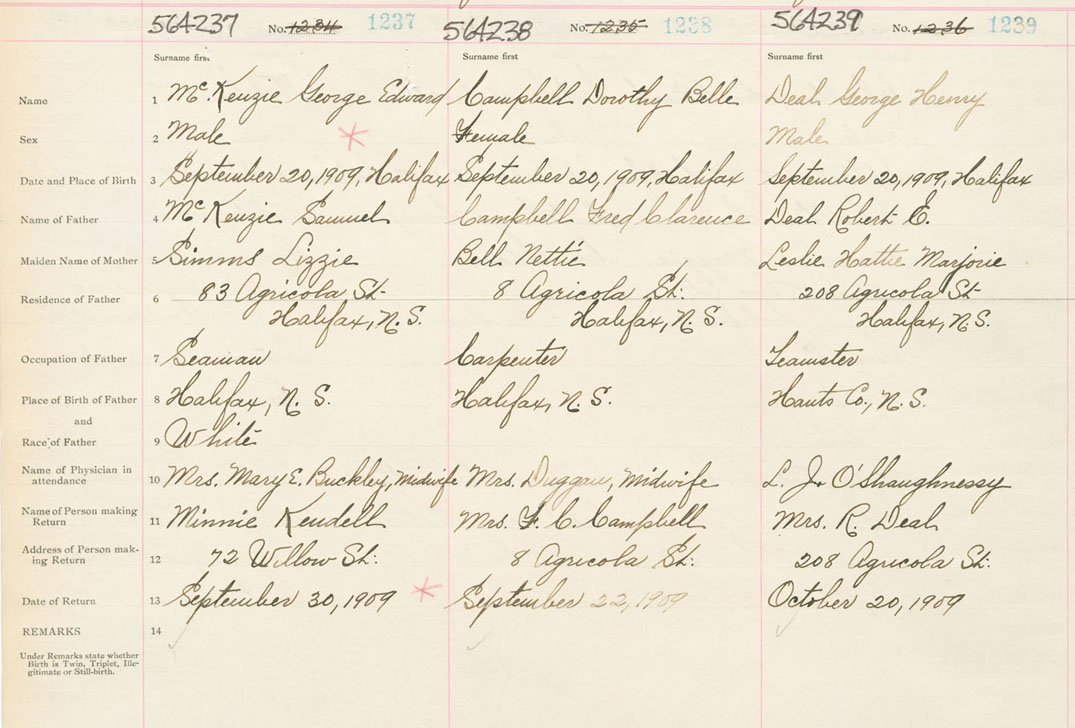 564237 No. 1234 1237 564238 No. 1235 1238 564239 No. 1236 1239
Surname first Surname first Surname first
Name 1 Mc.Kenzie George Edward Campbell Dorothy Belle Deal George Henry
Sex 2 Male Female Male
Date and Place of Birth 3 September 20, 1909, Halifax September 20, 1909, Halifax September 20, 1909, Halifax
Name of Father 4 Mc Kenzie Samuel Campbell Fred Clarence Deal Robert E.
Maiden Name of Mother 5 Simms Lizzie Bell Nettie Leslie Hattie Marjorie
Residence of Father 6 83 Agricola St. 8 Agricola St. 208 Agricola St
Halifax, N.S. Halifax, N.S. Halifax, N.S.
Occupation of Father 7 Seaman Carpenter Teamster
Place of Birth of Father 8 Halifax, N.S. Halifax, N.S. Hants Co., N.S.
and
Race of Father 9 White
Name of Physician in
attendance 10 Mrs. Mary E. Buckley, Midwife Mrs. Duggan, Midwife L. J. O'Shaughnessy
Name of Person making
Return 11 Minnie Kendell Mrs. F. C. Campbell Mrs. R. Deal
Address of Person mak-
ing Return 12 72 Willow St. 8 Agricola St. 208 Agricola St.
Date of Return 13 September 30, 1909 September 22, 1909 October 20, 1909
REMARKS 14
Under Remarks state whether
Birth is Twin, Triplet, Ille-
gitimate or Still-birth.